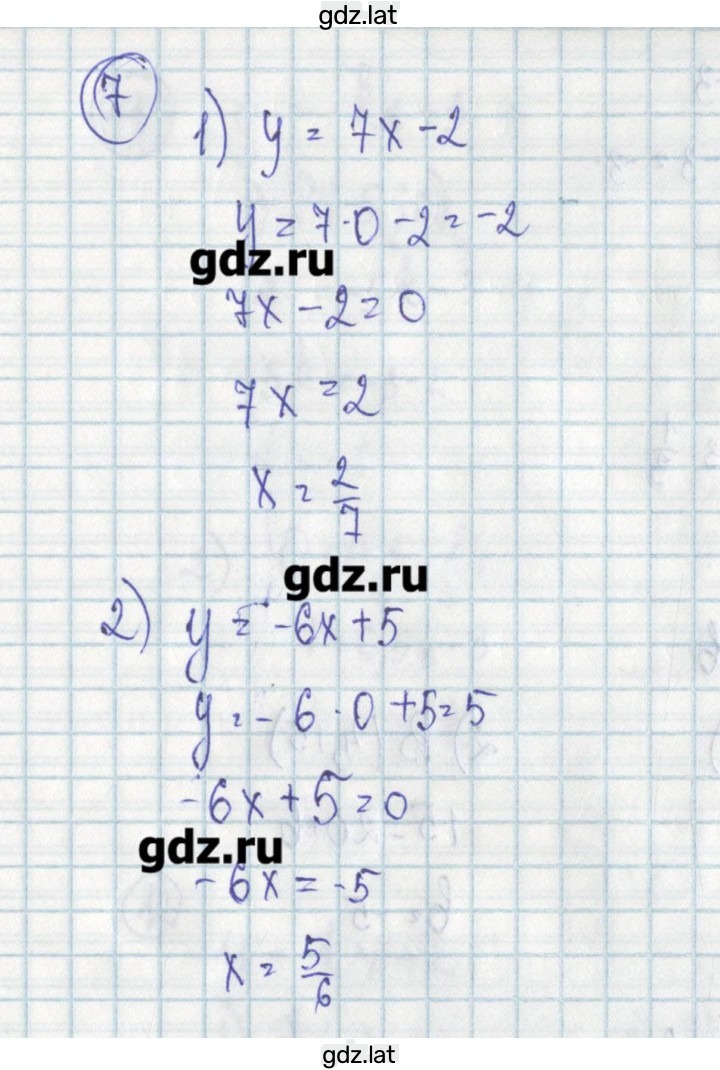 gdz.lat
7
1) y = 7x - 2
y = 7·0 - 2 = -2
gdz.ru
7x - 2 = 0
7x = 2
x = 2/7
gdz.ru
2) y = -6x + 5
y = -6·0 + 5 = 5
-6x + 5 = 0
gdz.ru
-6x = -5
x = 5/6
gdz.lat